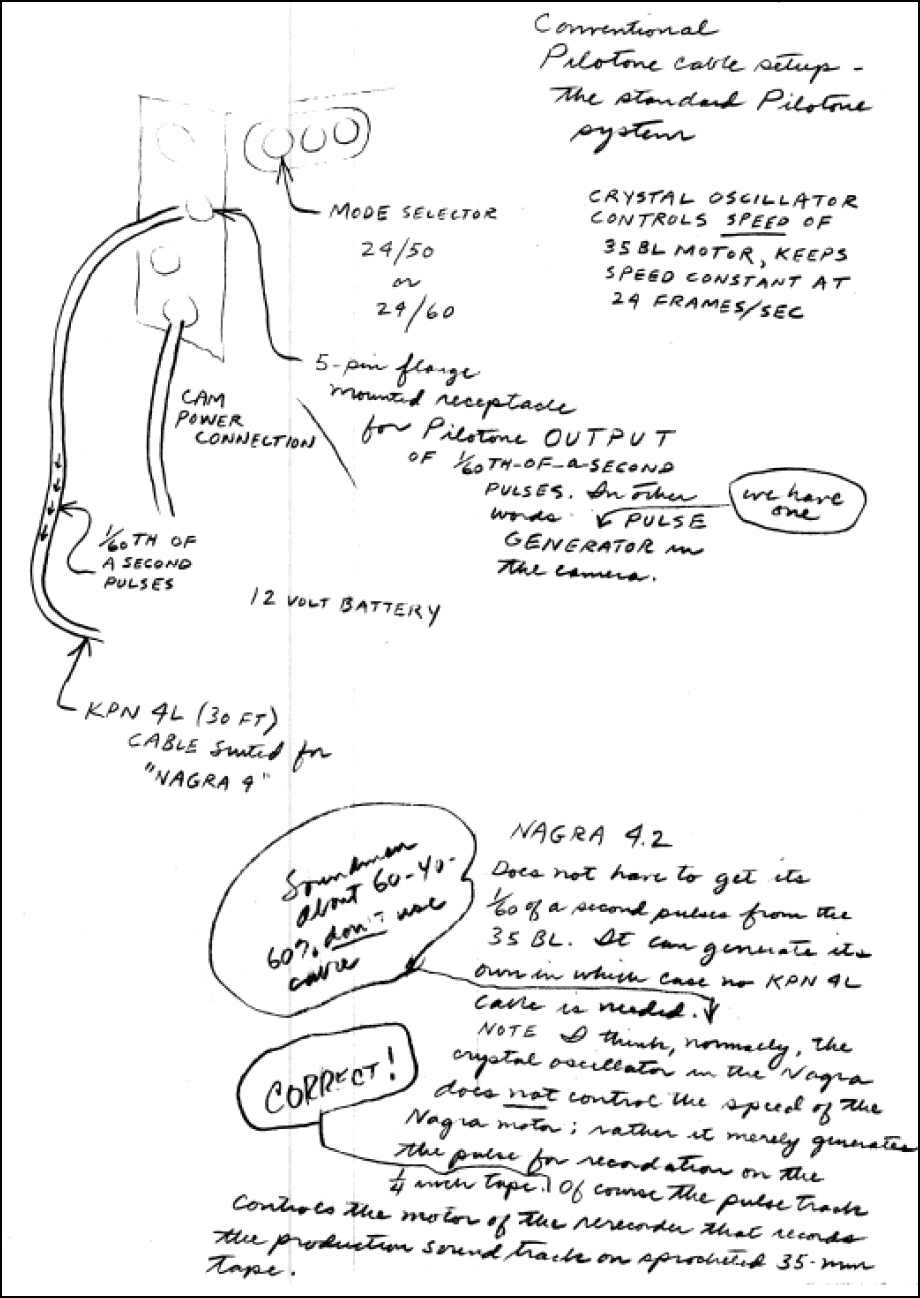 Conventional
Pilotone cable setup -
the standard Pilotone
system
CRYSTAL OSCILLATOR
CONTROLS SPEED OF
35 BL MOTOR, KEEPS
SPEED CONSTANT AT
24 FRAMES/SEC
MODE SELECTOR
24/50
or
24/60
5-pin flange
mounted receptacle
for Pilotone OUTPUT
OF 1/60TH-OF-a-SECOND
PULSES. In other
words PULSE
GENERATOR in
the camera.
we have
one
CAM
POWER
CONNECTION
1/60TH OF
A SECOND
PULSES
12 VOLT BATTERY
KPN 4L (30 FT)
CABLE suited for
"NAGRA 4"
Soundmen
about 60-40-
60% don't use
cable
NAGRA 4.2
Does not have to get its
1/60 of a second pulses from the
35 BL. It can generate its
own in which case no KPN 4L
cable is needed.
NOTE I think, normally, the
crystal oscillator in the Nagra
does not control the speed of the
Nagra motor; rather it merely generates
the pulse for recordation on the
1/4 inch tape. Of course the pulse track
controls the motor of the rerecorder that records
the production sound track on sprocketed 35-mm
tape.
CORRECT!